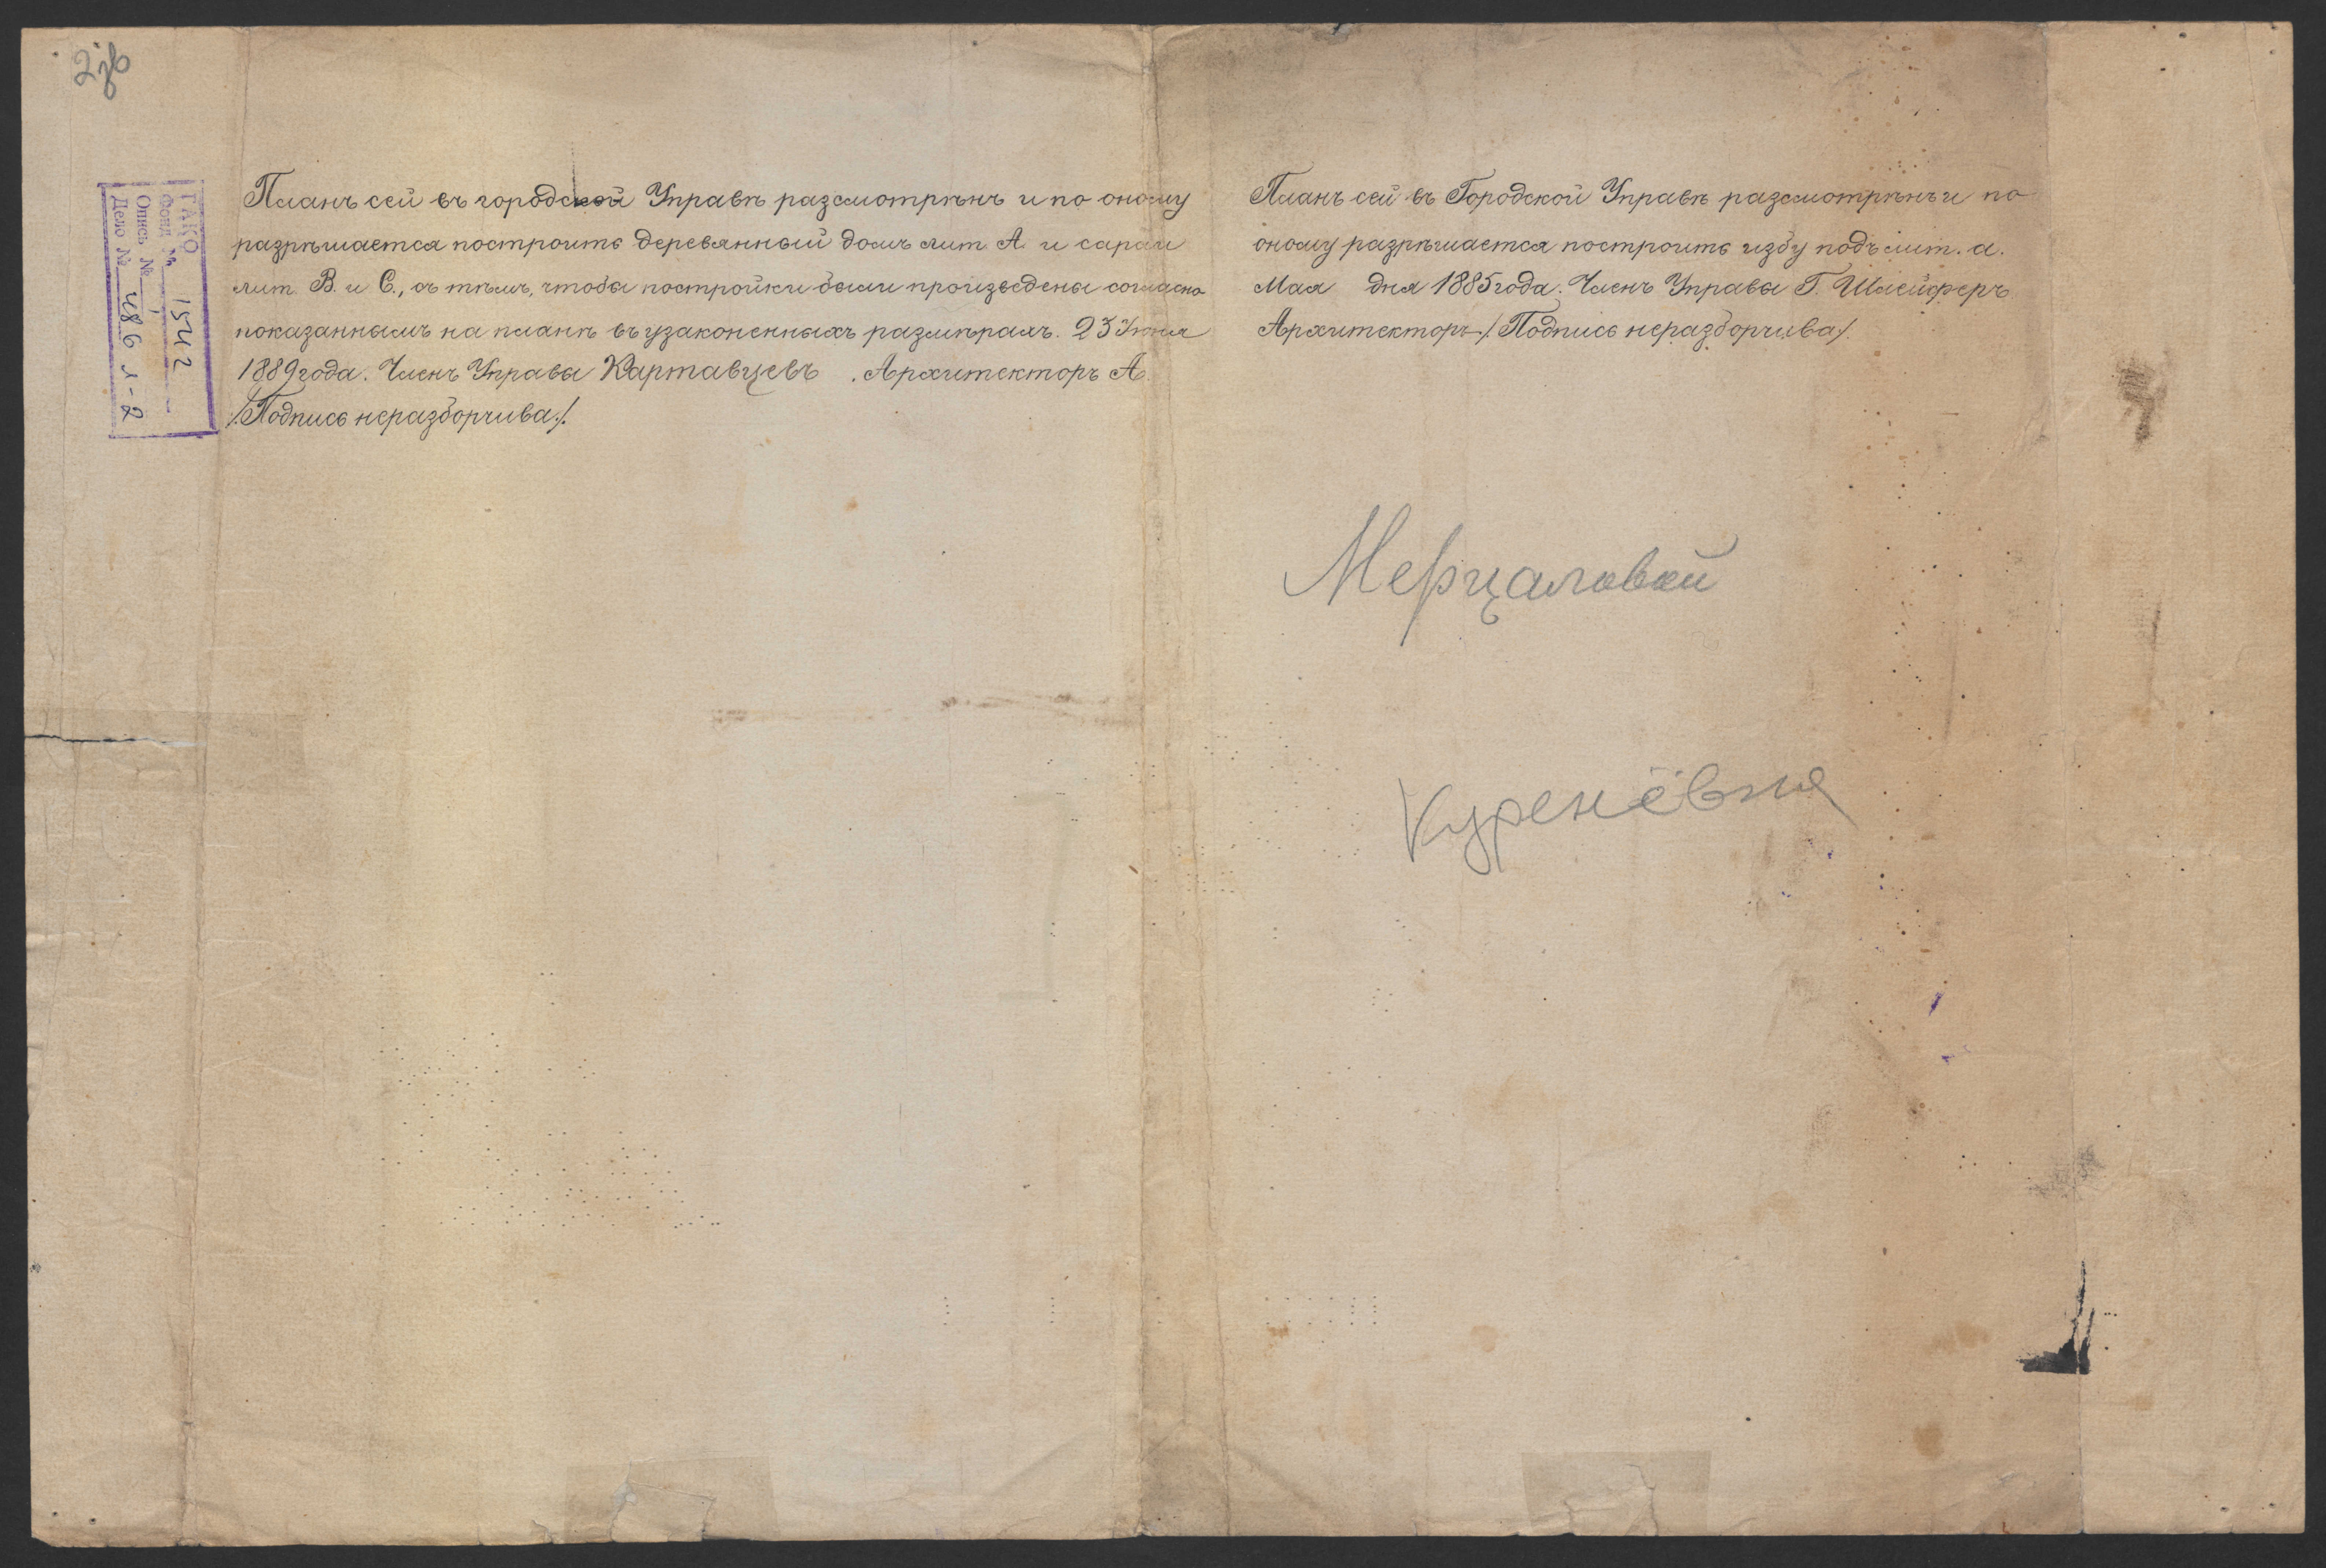 2об
ГАКО
Фонд № 1542
Опись №
Дело № 486 1-2
Планъ сей въ городской Управѣ разсмотрѣнъ и по оному
разрѣшается построить деревянный домъ лит. А. и сараи
лит. В. и С., съ тѣмъ, чтобы постройки были произведены согласно
показаннымъ на планѣ въ узаконенныхъ размѣрахъ. 23 Июня
1889 года. Членъ Управы Картавцевъ. Архитекторъ А.
/.Подпись неразборчива./.
Планъ сей въ Городской Управѣ разсмотрѣнъ и по
оному разрѣшается построить избу подъ лит. а.
Мая дня 1885 года. Членъ Управы Г. Шлейферъ
Архитекторъ /.Подпись неразборчива/.
Мерцаловой
Куренёвка